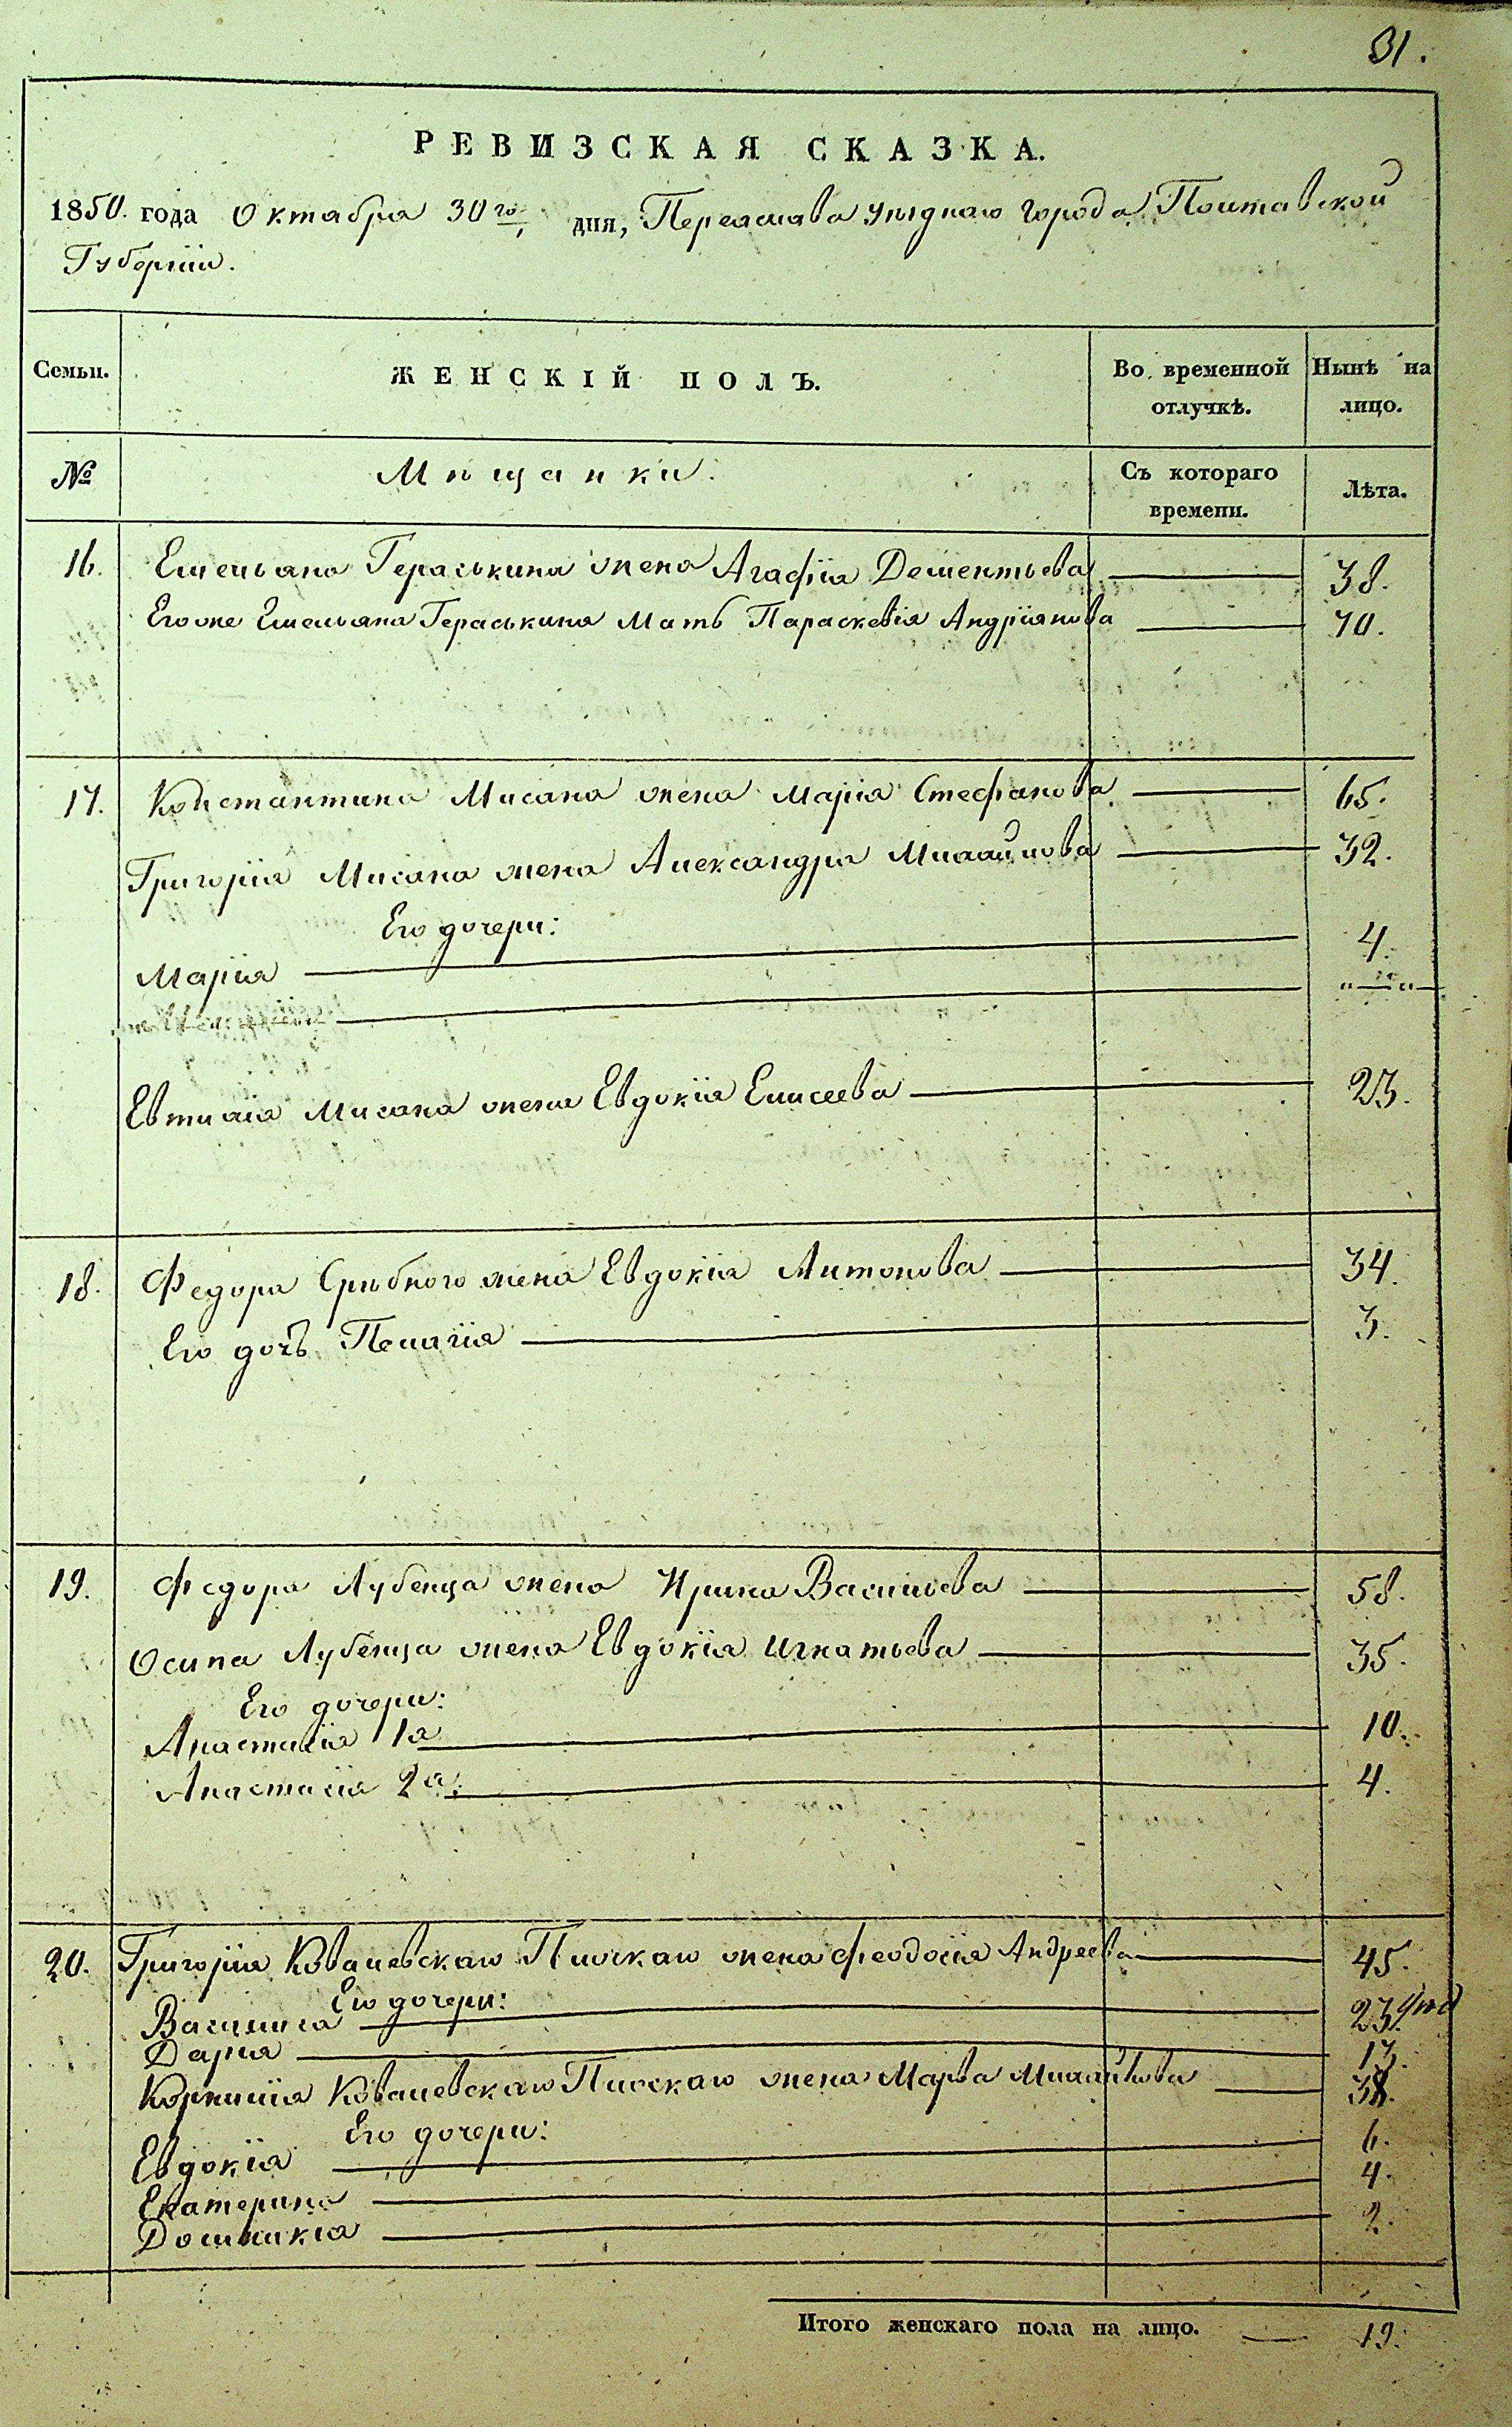 31.
РЕВИЗСКАЯ СКАЗКА.
1850. года Октабра 30го дня, Переаслава уѣзднаго города Полтавской
Губерніи.
Семьи. ЖЕНСКІЙ ПОЛЪ. Во временной отлучкѣ. Нынѣ на лицо.
№ Мѣщанки. Съ котораго времени. Лѣта.
16. Емельяна Гераськина жена Агафіа Дементьева 38.
Егоже Емельяна Гераськина Мать Параскевіа Андріанова 70.
17. Константина Мисана жена Маріа Стефанова 65.
Григоріа Мисана жена Александра Михайлова 32.
Его дочери:
Маріа 4.
Евтихіа Мисана жена Евдокіа Елисеева 23.
18. Федора Срѣбного жена Евдокіа Антонова 34.
Его дочь Пелагіа 3.
19. Федора Лубенца жена Ирина Васильева 58.
Осипа Лубенца жена Евдокіа Игнатьева 35.
Его дочери:
Анастасіа 1а 10.
Анастасіа 2а. 4.
20. Григоріа Ковалевскаго Плискаго жена Феодосіа Андреева 45.
Его дочери:
Василиса 23.
Дариа 17.
Корнилиа Ковалевскаго Плискаго жена Марѳа Михайлова 38.
Его дочери:
Евдокіа 6.
Екатерина 4.
Домникіа 2.
Итого женскаго пола на лицо. 19.